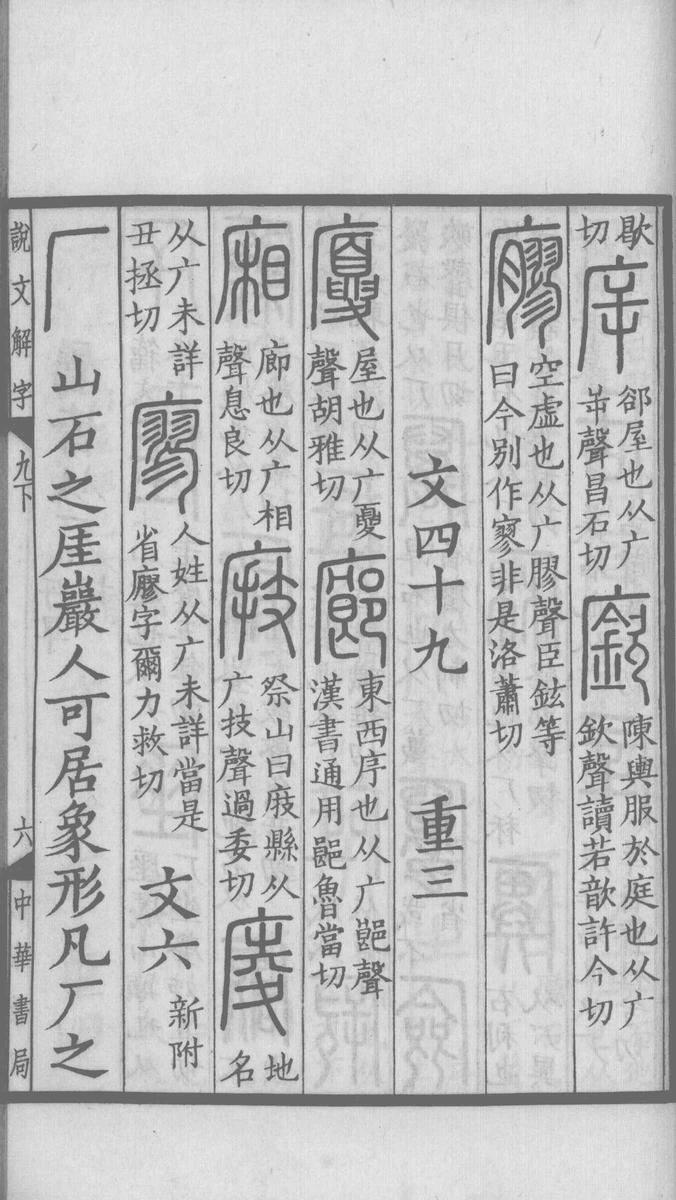 歇切 㡿 郤屋也从广屰聲昌石切 廞 陳輿服於庭也从广欽聲讀若歆許今切
廫 空虛也从广膠聲臣鉉等曰今別作寥非是洛蕭切
文四十九 重三
廈 屋也从广夏聲胡雅切 廊 東西序也从广郎聲漢書通用郎魯當切
廂 廊也从广相聲息良切 庪 祭山曰庪縣从广技聲過委切 庱 地名
从广未詳丑拯切 廖 人姓从广未詳當是省廫字爾力救切 文六 新附
厂 山石之厓巖人可居象形凡厂之
說文解字 九下 六 中華書局